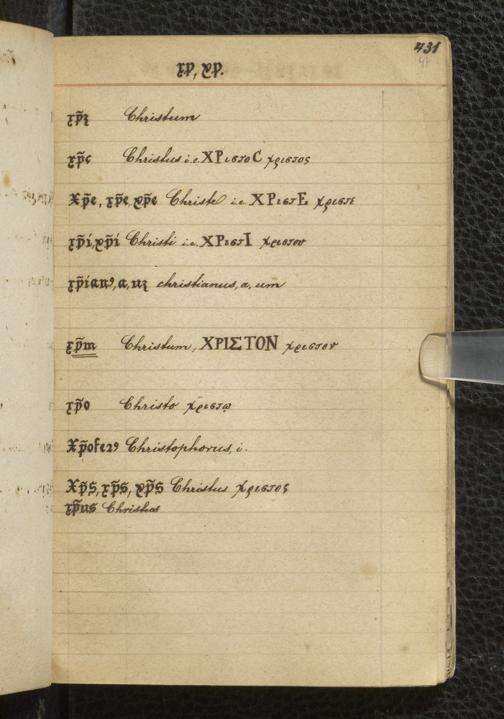 431
47
xp, xp.
xp̃ʒ Christum
xp̃c Christus i.e. XPιστοC χριστος
Xp̃e, xp̃e, xp̃e Christe i.e. XPιστE χριστε
xp̃i, xp̃i Christi i.e. XPιστI χριστου
xp̃ianꝰ, a, uʒ christianus, a, um
xp̃m Christum, ΧΡΙΣΤΟΝ χριστον
xp̃o Christo χριστῳ
Xp̃oferꝰ Christophorus, i.
Xp̃s, xp̃s, xp̃s Christus χριστος
xp̃us Christus